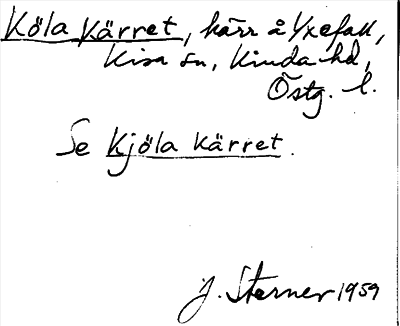 Köla Kärret, kärr å Yxefall,
Kisa sn, Kinda hd,
Östg. l.
Se Kjöla Kärret.
J. Sterner 1959